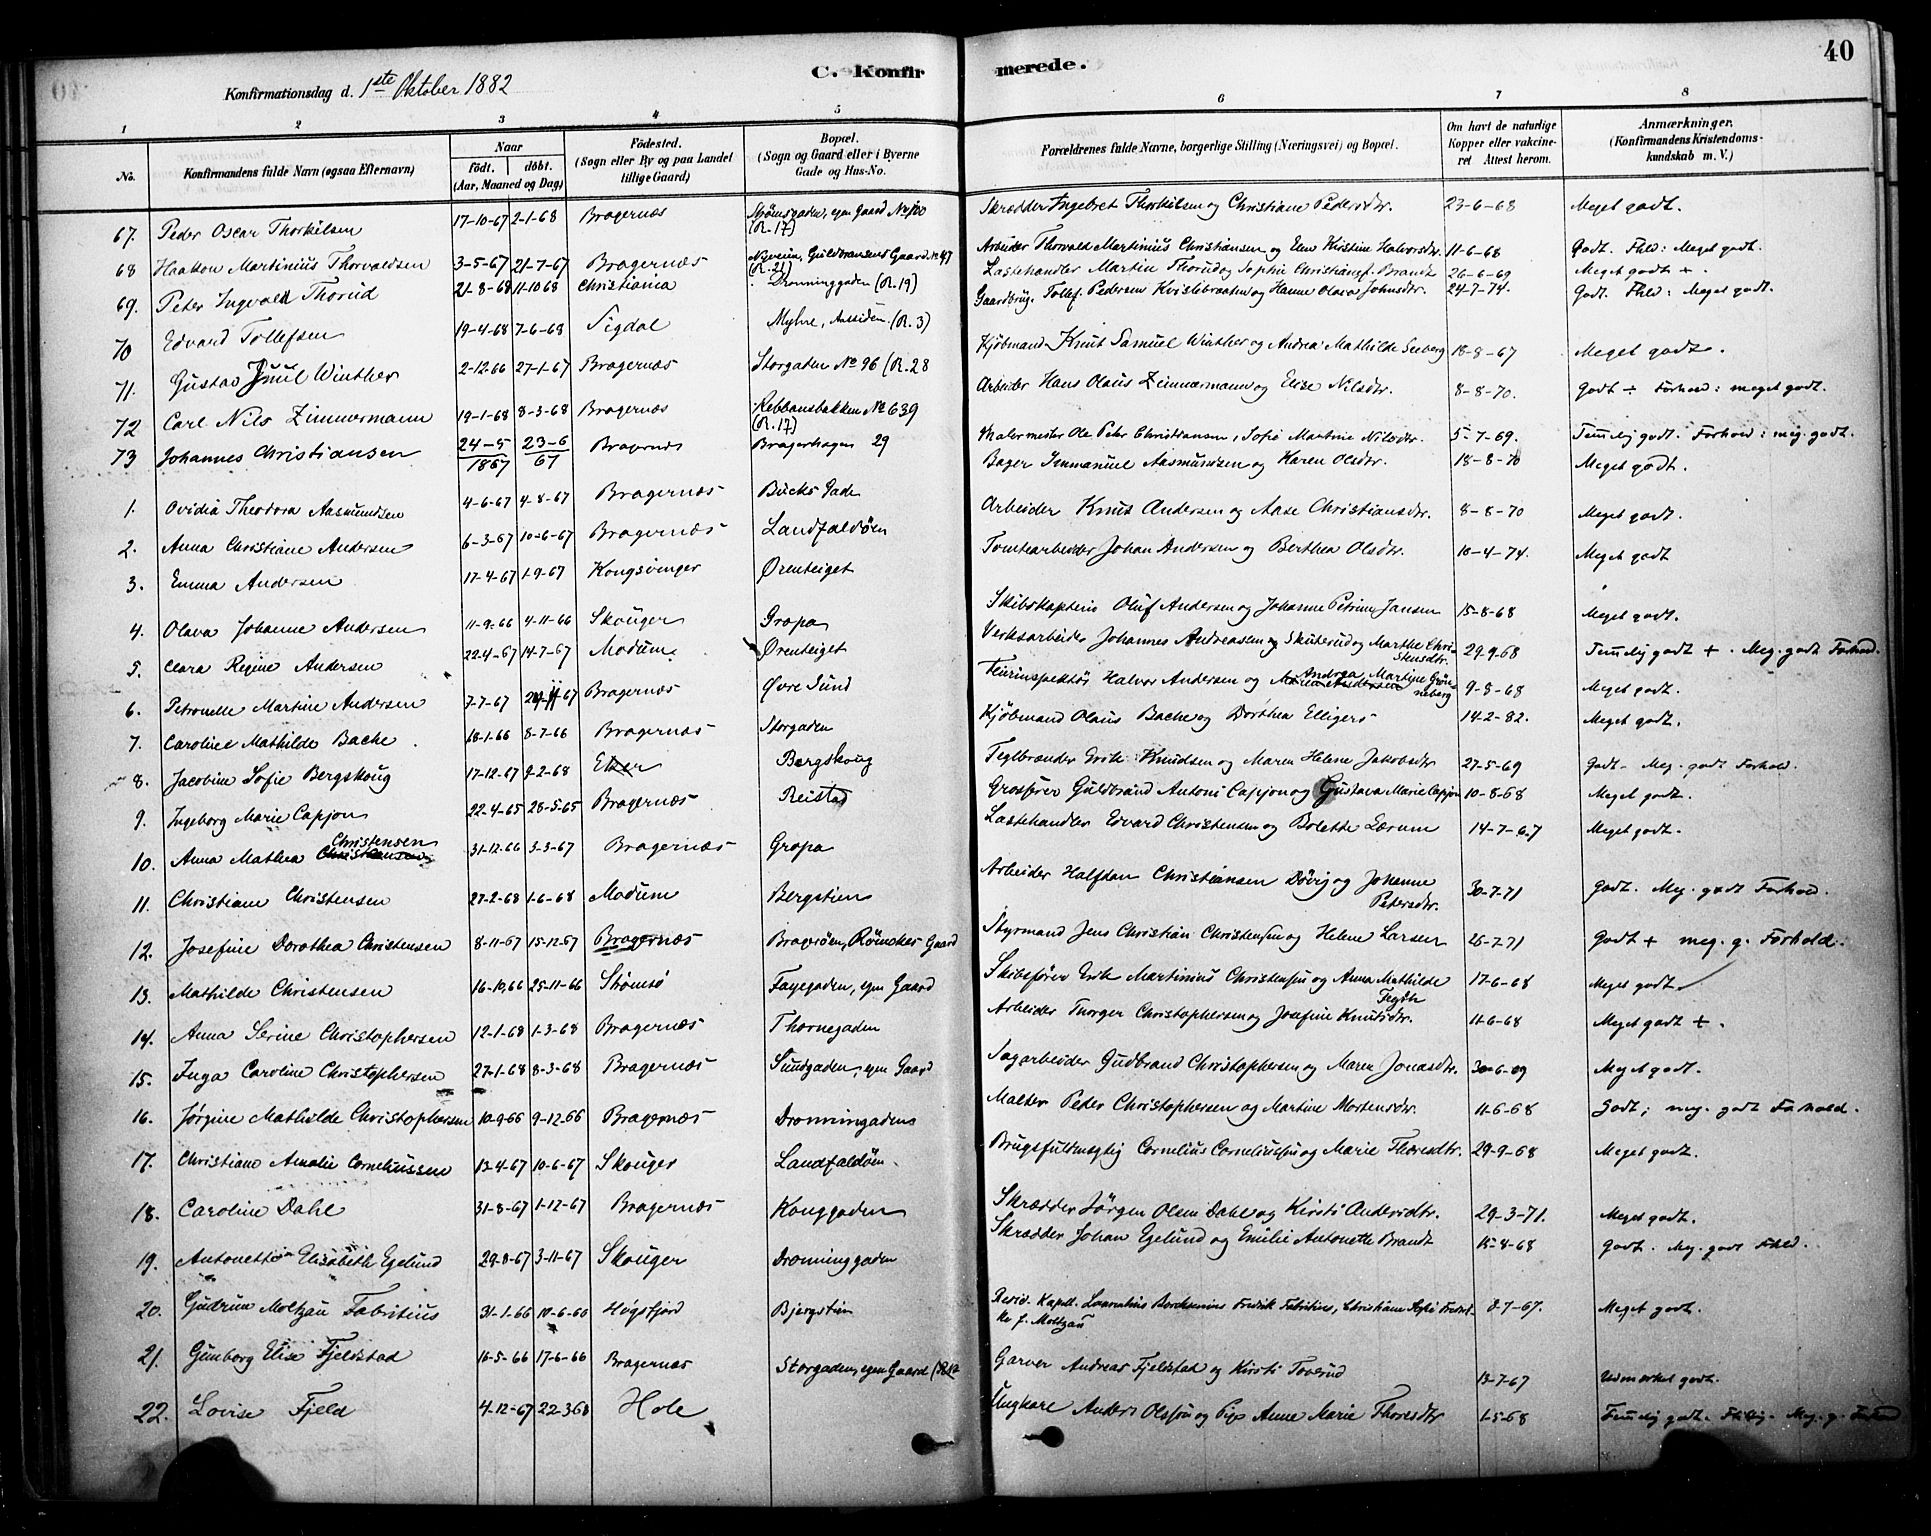 40
C. Konfirmerede.
Konfirmationsdag d. 1ste Oktober 1882
1 2 3 4 5 6 7 8
No. Konfirmandens fulde Navn (ogsaa Efternavn) Naar födt. döbt. (Aar, Maaned og Dag) Födested. (Sogn eller By og paa Landet tillige Gaard) Bopæl. (Sogn og Gaard eller i Byerne Gade og Hus-No. Forældrenes fulde Navne, borgerlige Stilling (Næringsvei) og Bopæl. Om havt de naturlige Kopper eller vaccineret Attest herom. Anmærkninger. (Konfirmandens Kristendomskundskab m. V.)
67. Peder Oscar Thorkilsen 17-10-67 2-1-68 Bragernæs Strömsgaden, egen Gaard No 100 (R. 17) Skrædder Ingebret Thorkilsen og Christiane Pedersdtr. 23-6-68 Meget godt.
68 Haakon Martinius Thorvaldsen 3-5-67 21-7-67 Bragernæs Nyveien, Guldbransens Gaard No 47 (R. 21) Arbeider Thorvald Martinius Christiansen og Elen Kirstine Halvorsdtr. 11-6-68 Godt. Fhld: Meget godt.
69. Peter Ingvald Thorud 21-8-68 11-10 68 Christiania Dronninggaden (R. 19) Lastehandler Martin Thorud og Sophie Christiane f. Brandt 26-6-69 Meget godt +.
70 Edvard Tollefsen 19-4-68 7-6-68 Sigdal Myhre, Aassiden. (R. 3) Gaardbrug. Tollef Pedersen Kvislebraaten og Hanne Olava Johnsdtr. 24-7-74. Godt. Fhld: Meget godt.
71. Gustav Juul Winther 2-12 66 27-1-67 Bragernæs Storgaden No 96 (R. 28 Kjöbmand Knut Samuel Winther og Andrea Mathilde Seeberg 18-8-67 Meget godt.
72 Carl Nils Zimmermann 19-1-68 8-3-68 Bragernæs Rebbansbakken No 639 (R. 17) Arbeider Hans Olaus Zimmermann og Elise Nilsdtr. 8-8-70. Godt ÷ Forhold: meget godt.
73 Johannes Christiansen 24-5 1867 23-6 67 Bragernæs Bragerhagen 29 Malermester Ole Peter Christiansen, Sofie Martine Nilsdtr. 5-7-69. Temmelig godt. Forhold: meg. godt.
1. Ovidia Theodora Aasmundsen 4-6-67 4-8-67 Bragernæs Bucks Gade Bager Immanuel Aasmundsen og Karen Olsdtr. 18-8-70 Meget godt.
2. Anna Christiane Andersen 6-3-67 10-6-67 Bragernæs Landfaldöen Arbeider Knut Andersen og Aase Christiansdtr. 8-8-70 Meget godt.
3. Emma Andersen 17-4-67 1-9-67 Kongsvinger Örenteiget Tomtearbeider Johan Andersen og Berthea Olsdtr. 10-4-74. Meget godt
4. Olava Johanne Andersen 11-9-66 4-11-66 Skouger Gropa Skibskaptein Oluf Andersen og Johanne Petrine Jansen 15-8-68 Meget godt.
5. Clara Regine Andersen 22-4-67 14-7-67 Modum Örenteiget Verksarbeider Johannes Andreassen Skuterud og Marthe Christensdtr. 29-9-68 Temmelig godt +. Meg. godt Forhold.
6. Petronelle Martine Andersen 7-7-67 Bragernæs Övre Sund Halvor Andersen og Andrea Martine Grönneberg 9-8-68 Meget godt.
7. Caroline Mathilde Bache 18-1-66 8-7-66 Bragernæs Storgaden Kjöbmand Olaus Bache og Dorthea Elligers 14-2-82. Meget godt.
8. Jacobine Sofie Bergskoug 17-12-67 9-2-68 Eker Bergskoug Teglbrænder Erik Knudsen og Maren Helene Jakobsdtr 27-5-69 Godt - Meg. godt Forhold.
9. Ingeborg Marie Capjon 22-4-65 28-5-65 Bragernæs Reistad Grosserer Guldbrand Antoni Capjon og Gustava Marie Capjon 10-8-68 Meget godt.
10. Anna Mathea Christensen 31-12-66 3-3-67 Bragernæs Gropa Lastehandler Edvard Christensen og Bolette Lærum 14-7-67 Meget godt.
11. Christiane Christensen 27-2-68 1-6-68 Modum Bergstien Arbeider Halfdan Christiansen Dövig og Johanne Petersdtr. 30-7-71 Godt. Meg. godt Forhold.
12. Josefine Dorothea Christensen 8-11-67 15-12-67 Bragernæs Bragerøen, Rönckes Gaard Styrmand Jens Christian Christensen og Helene Larsen 26-7-71 Godt + meg. g. Forhold.
13. Mathilde Christensen 16-10,66 25-11-66 Strömsö Fayegaden, egen Gaard Skibsförer Erik Martinius Christensen og Anna Mathilde 17-6-68 Meget godt
14. Anna Serine Christophersen 12-1-68 1-3-68 Bragernæs Thornegaden Arbeider Thorger Christophersen og Josefine Knutsdtr. 11-6-68 Meget godt +.
15. Inga Caroline Christophersen 27-1-68 8-3-68 Bragernæs Sundgaden, egen Gaard Sagarbeider Gudbrand Christophersen og Maren Jonasdtr. 30-6-69 Meget godt.
16. Jörgine Mathilde Christophersen 10-9-66 9-12-66 Bragernæs Dronningaden Malter Peder Christophersen og Martine Mortensdtr. 11-6-68 Godt; meg. godt Forhold.
17. Christiane Amalie Corneliussen 13-4-67 10-6-67 Skouger Landfaldöen. Brugsfuldmægtig Cornelius Corneliussen og Marie Thoresdtr. 29-9-68 Meget godt.
18. Caroline Dahl 31-8-67 1-12-67 Bragernæs Konggaden Skrædder Jörgen Olsen Dahl og Kirsti Andersdtr. 29-3-71. Meget godt.
19. Antonette Elisabeth Egelund 29-8-67 3-11-67 Skouger Dronninggaden Skrædder Johan Egelund og Emilie Antonette Brandt 15-8-68 Godt. Meg. godt Fhld.
20. Gudrun Moltzau Fabritius 31-1-66 10-6-66 Högsfjord Bjergstien Resid. Kapell. Laurentius Borchsenius Fredrik Fabritius, Christiane Sofie f. Moltzau 8-7-67. Meget godt.
21. Gunborg Elise Fjeldstad 16-5-66 17-6-66 Bragernæs Storgaden, egen Gaard (R. 12 Garver Andreas Fjeldstad og Kirsti Toverud 13-7-67 Udmærket godt.
22. Lovise Fjeld 4-12-67 22-3 68 Hole Ungkarl Anders Olssen og Pige Anne Marie Thoresdtr 1-5-68 Temmelig godt. Flittig. Meg. g. Forhold